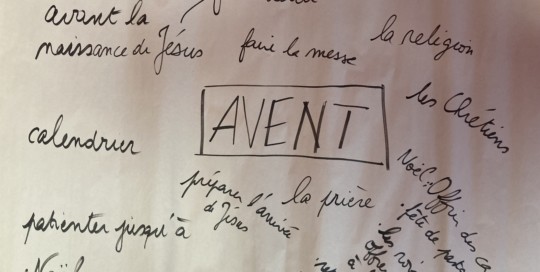 avant la
naissance de Jésus
faire la messe
la religion
les Chrétiens
AVENT
calendrier
préparer l'arrivée
de Jésus
la prière
patienter jusqu'à
Noël
Noël: Offrir des
fête de
les